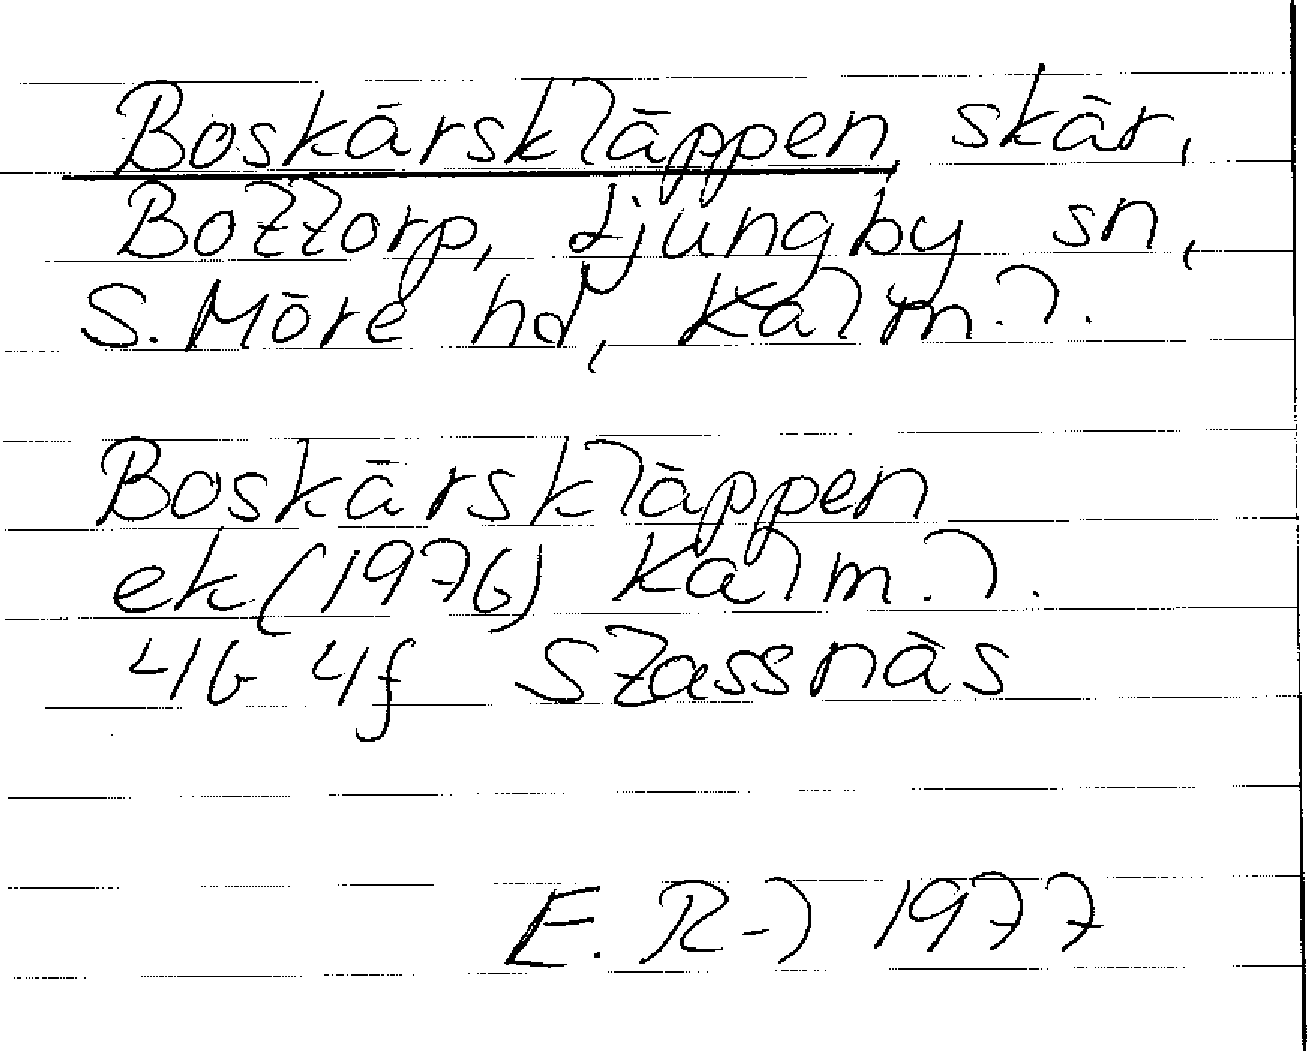 Boskärskläppen skär,
Bottorp, Ljungby sn,
S. Möre hd, Kalm. l.
Boskärskläppen
ek (1976) Kalm. l.
4G 4f Stassnäs
E. R-l 1977